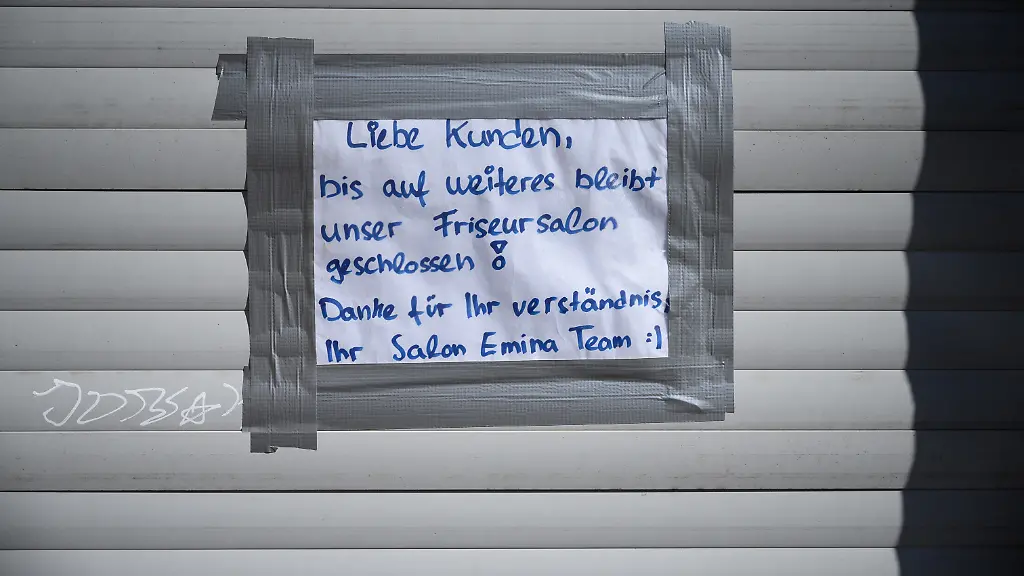 Liebe Kunden,
bis auf weiteres bleibt
unser Friseursalon
geschlossen !
Danke für Ihr verständnis,
Ihr Salon Emina Team :)